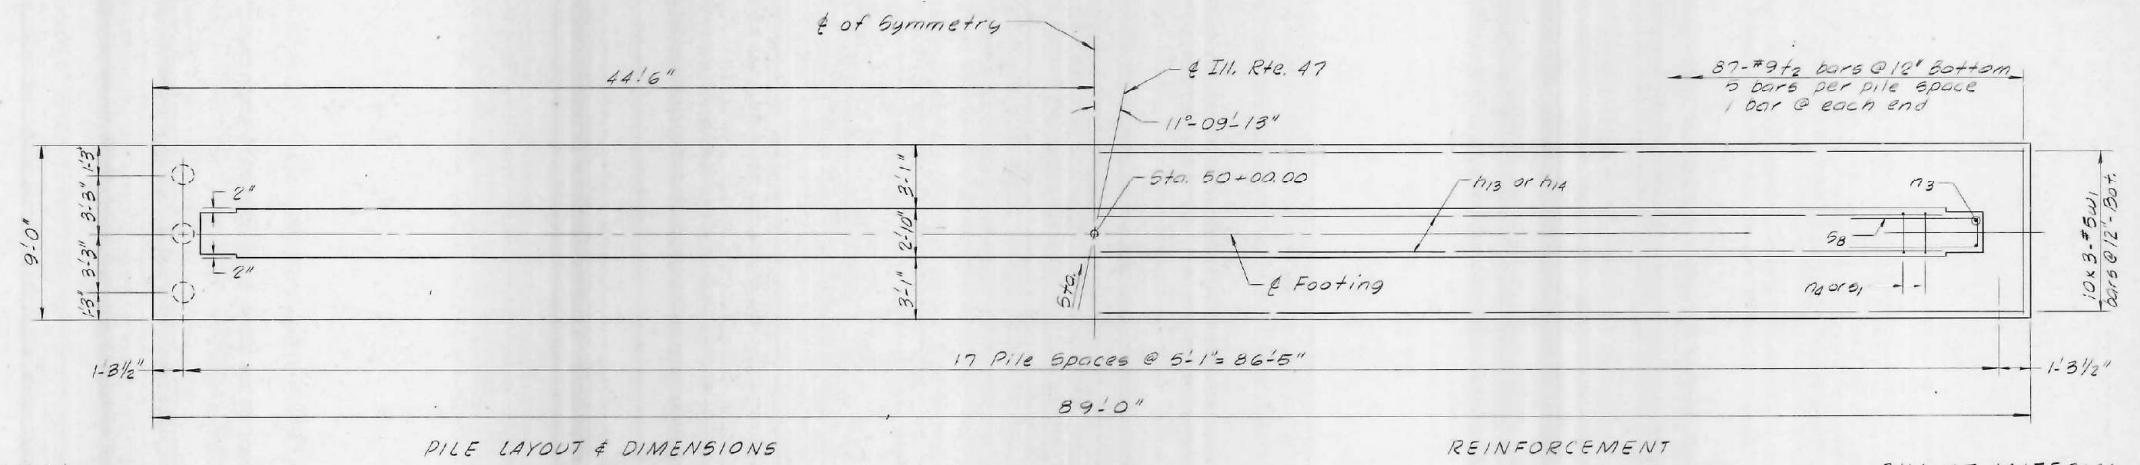 ℄ of Symmetry
44'-6"
℄ Ill. Rte. 47
11°-09'-13"
87-#9t2 bars @ 12" Bottom
5 bars per pile space
1 bar @ each end
9'-0"
1'-3"
3'-3"
3'-3"
1'-3"
2"
2"
3'-1"
2'-10"
3'-1"
Sta. 50+00.00
Sta.
h13 or h14
n3
s8
n4 or s1
℄ Footing
10x3-#5w1
bars @ 12"-Bot.
1'-3½"
17 Pile Spaces @ 5'-1"= 86'-5"
1'-3½"
89'-0"
PILE LAYOUT & DIMENSIONS
REINFORCEMENT